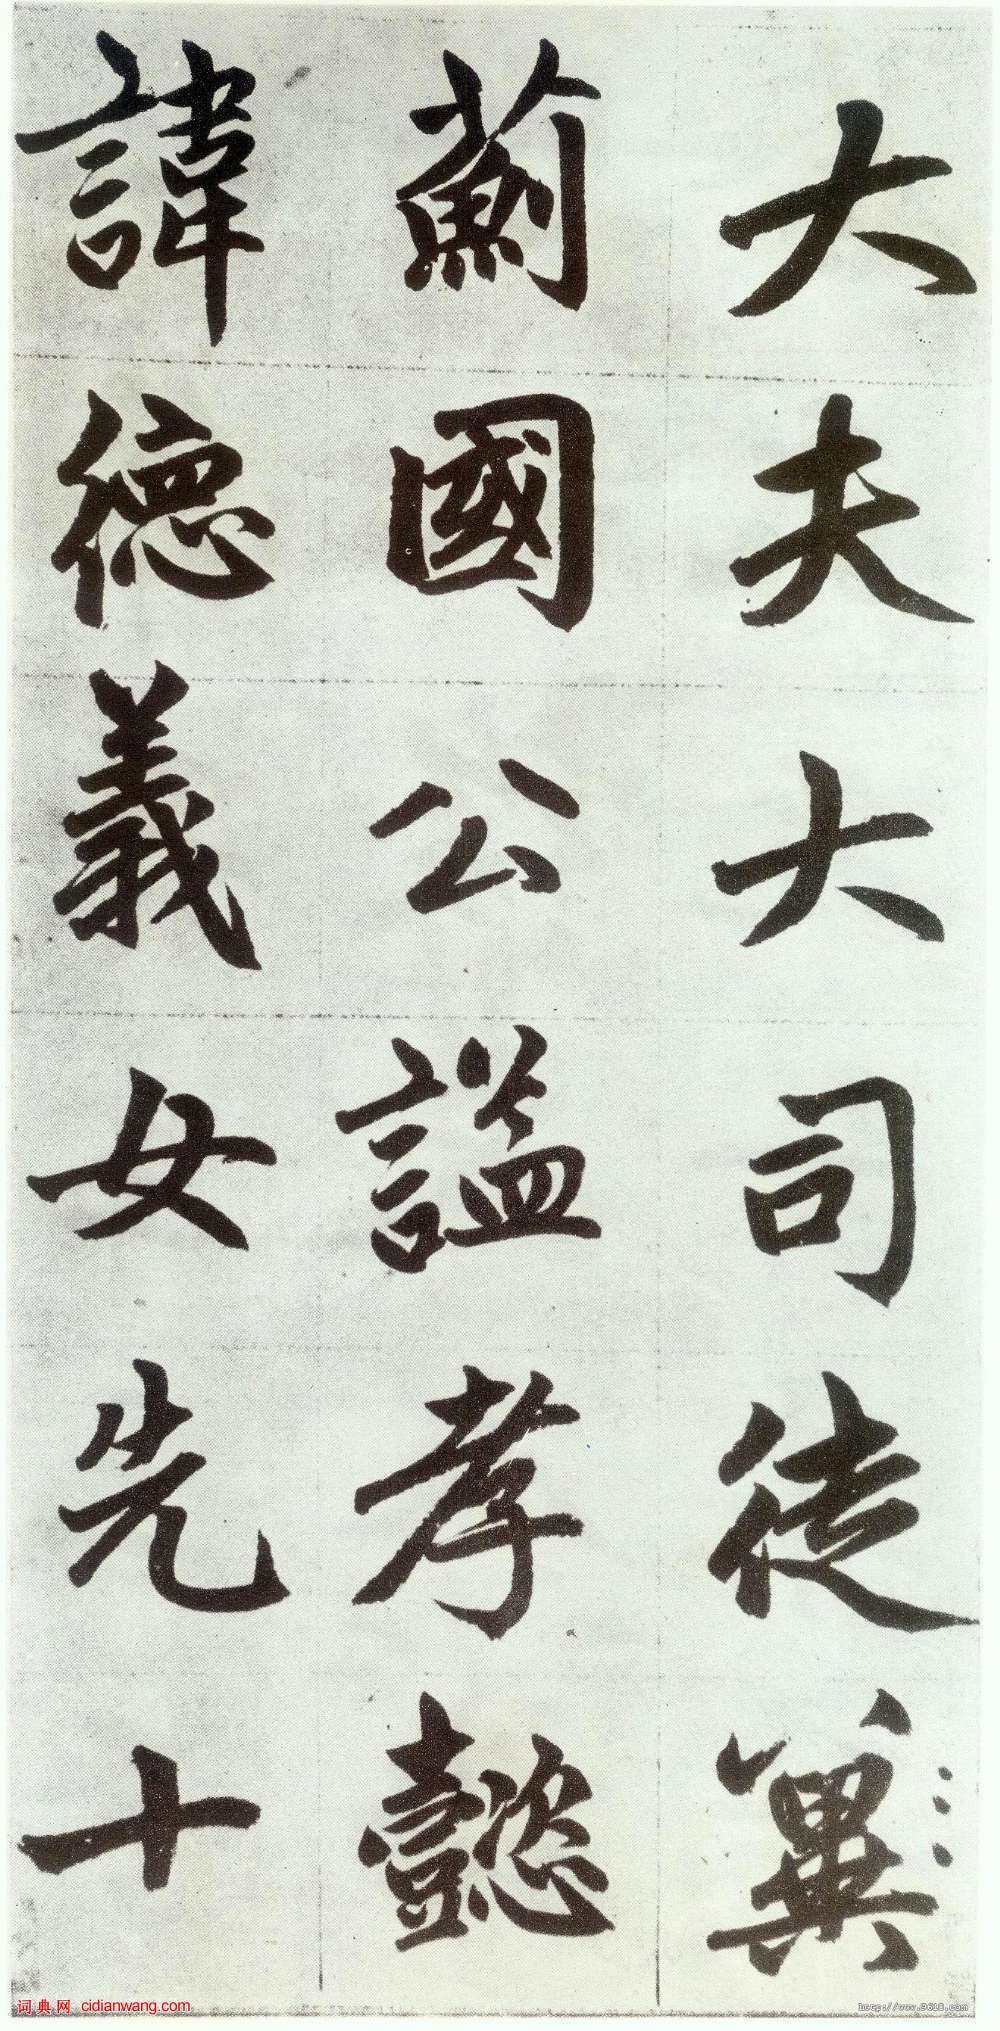 大夫大司徒冀
薊國公謚孝懿
諱德義女先十
词典网 cidianwang.com
http://www.9610.com